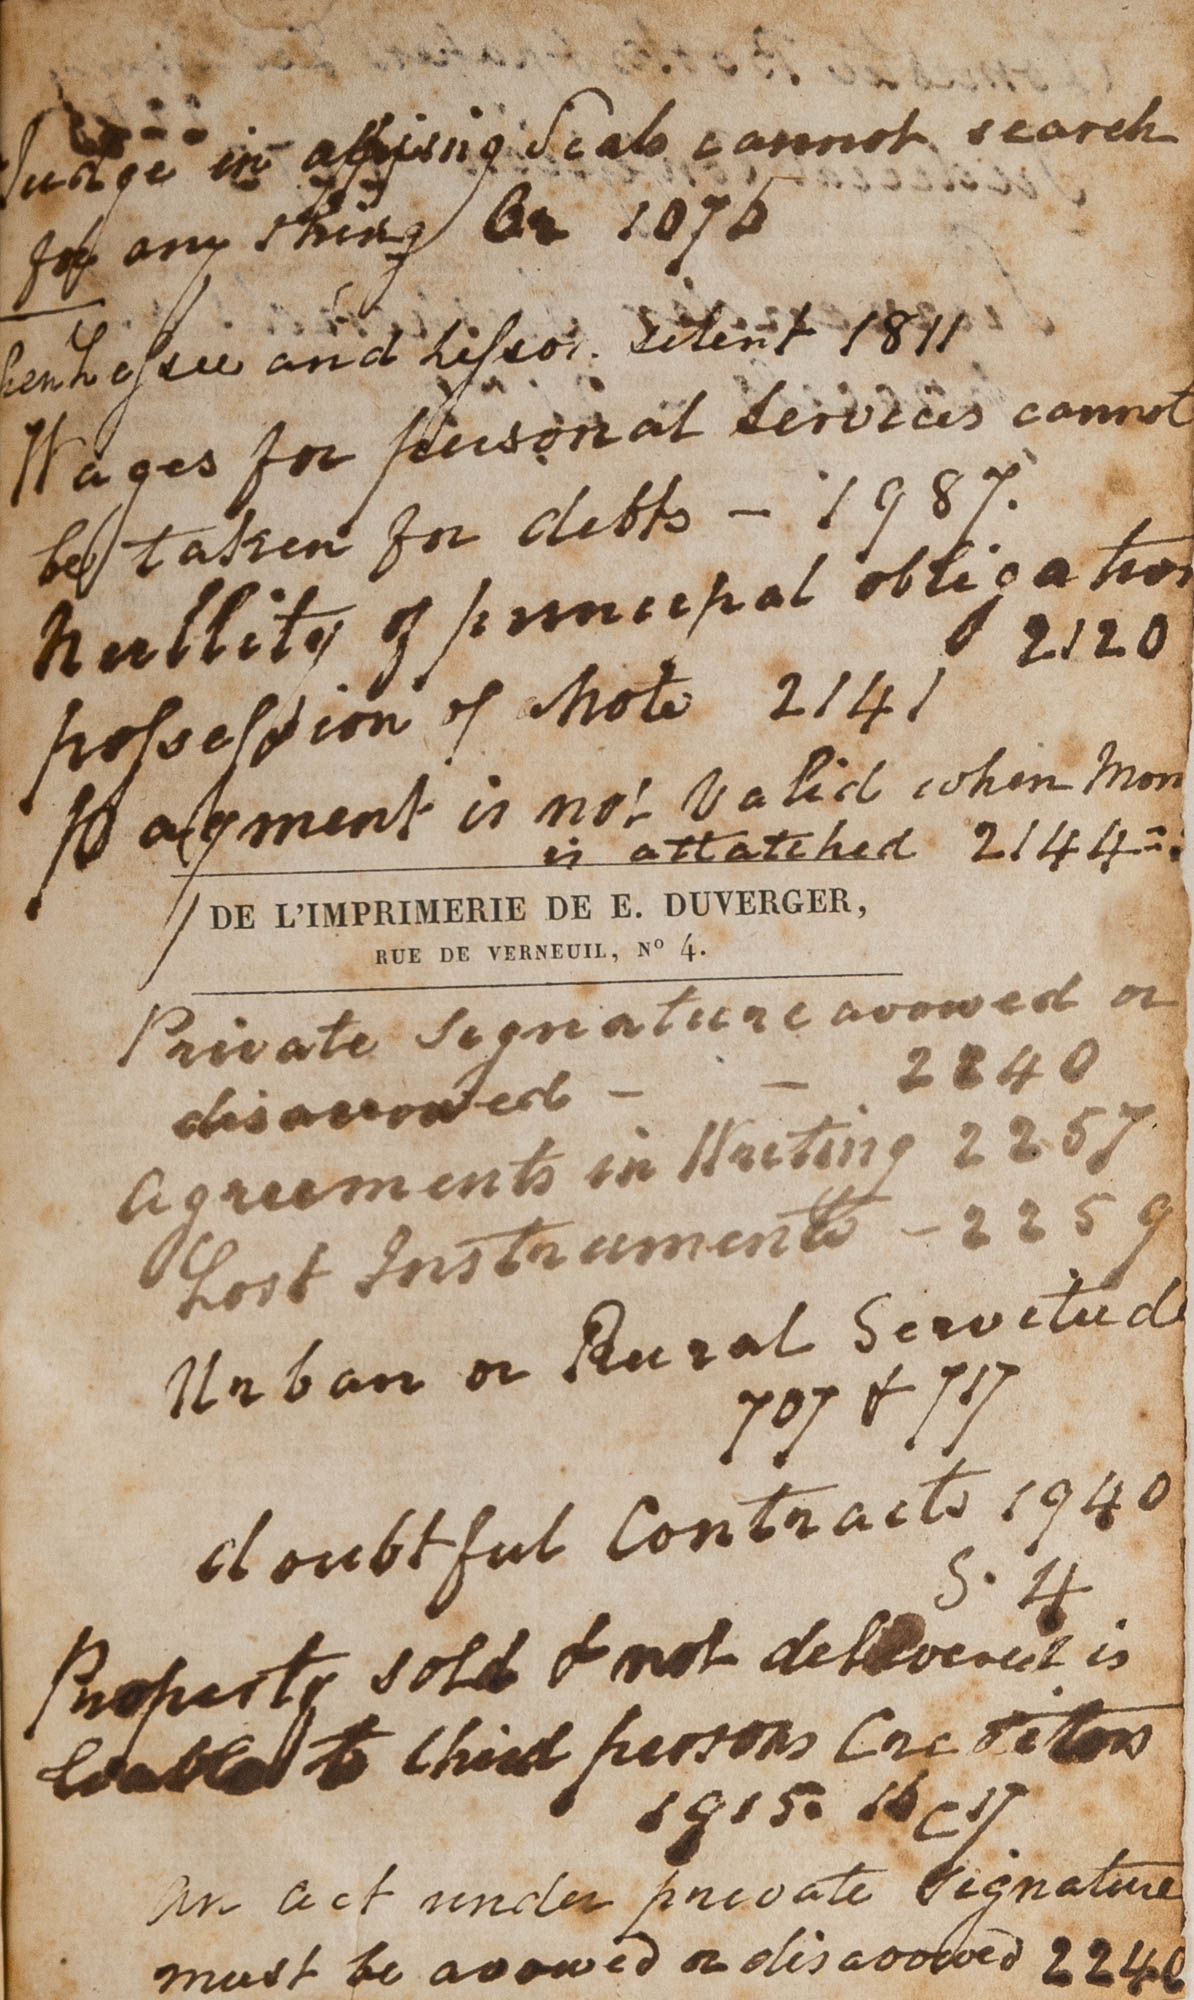 Judge in affixing Seals cannot search
for any thing Ar 1075
hen Lessee and Lessor. silent 1811
Wages for personal services cannot
be taken for debts – 1987.
Nullity of principal obligation
2120
possession of Note 2141
Payment is not valid when Mon
is attatched 2144
DE L'IMPRIMERIE DE E. DUVERGER,
RUE DE VERNEUIL, N° 4.
Private signature avowed or
disavowed – – 2240
Agreements in Writing 2257
Lost Instruments – 2259
Urban or Rural Servitude
707 & 717
doubtful Contracts 1940
S. 4
Property sold & not delivered is
liable to third persons Creditors
1915. 16 17
An act under private signature
must be avowed or disavowed 2240